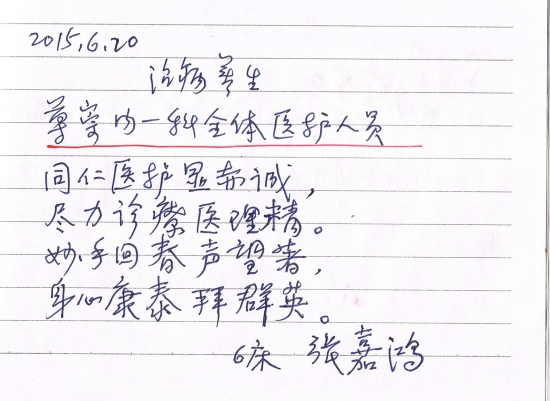 2015.6.20
治病养生
尊崇内一科全体医护人员
同仁医护显赤诚，
尽力诊療医理精。
妙手回春声望著，
身心康泰拜群英。
6床 张嘉鸿